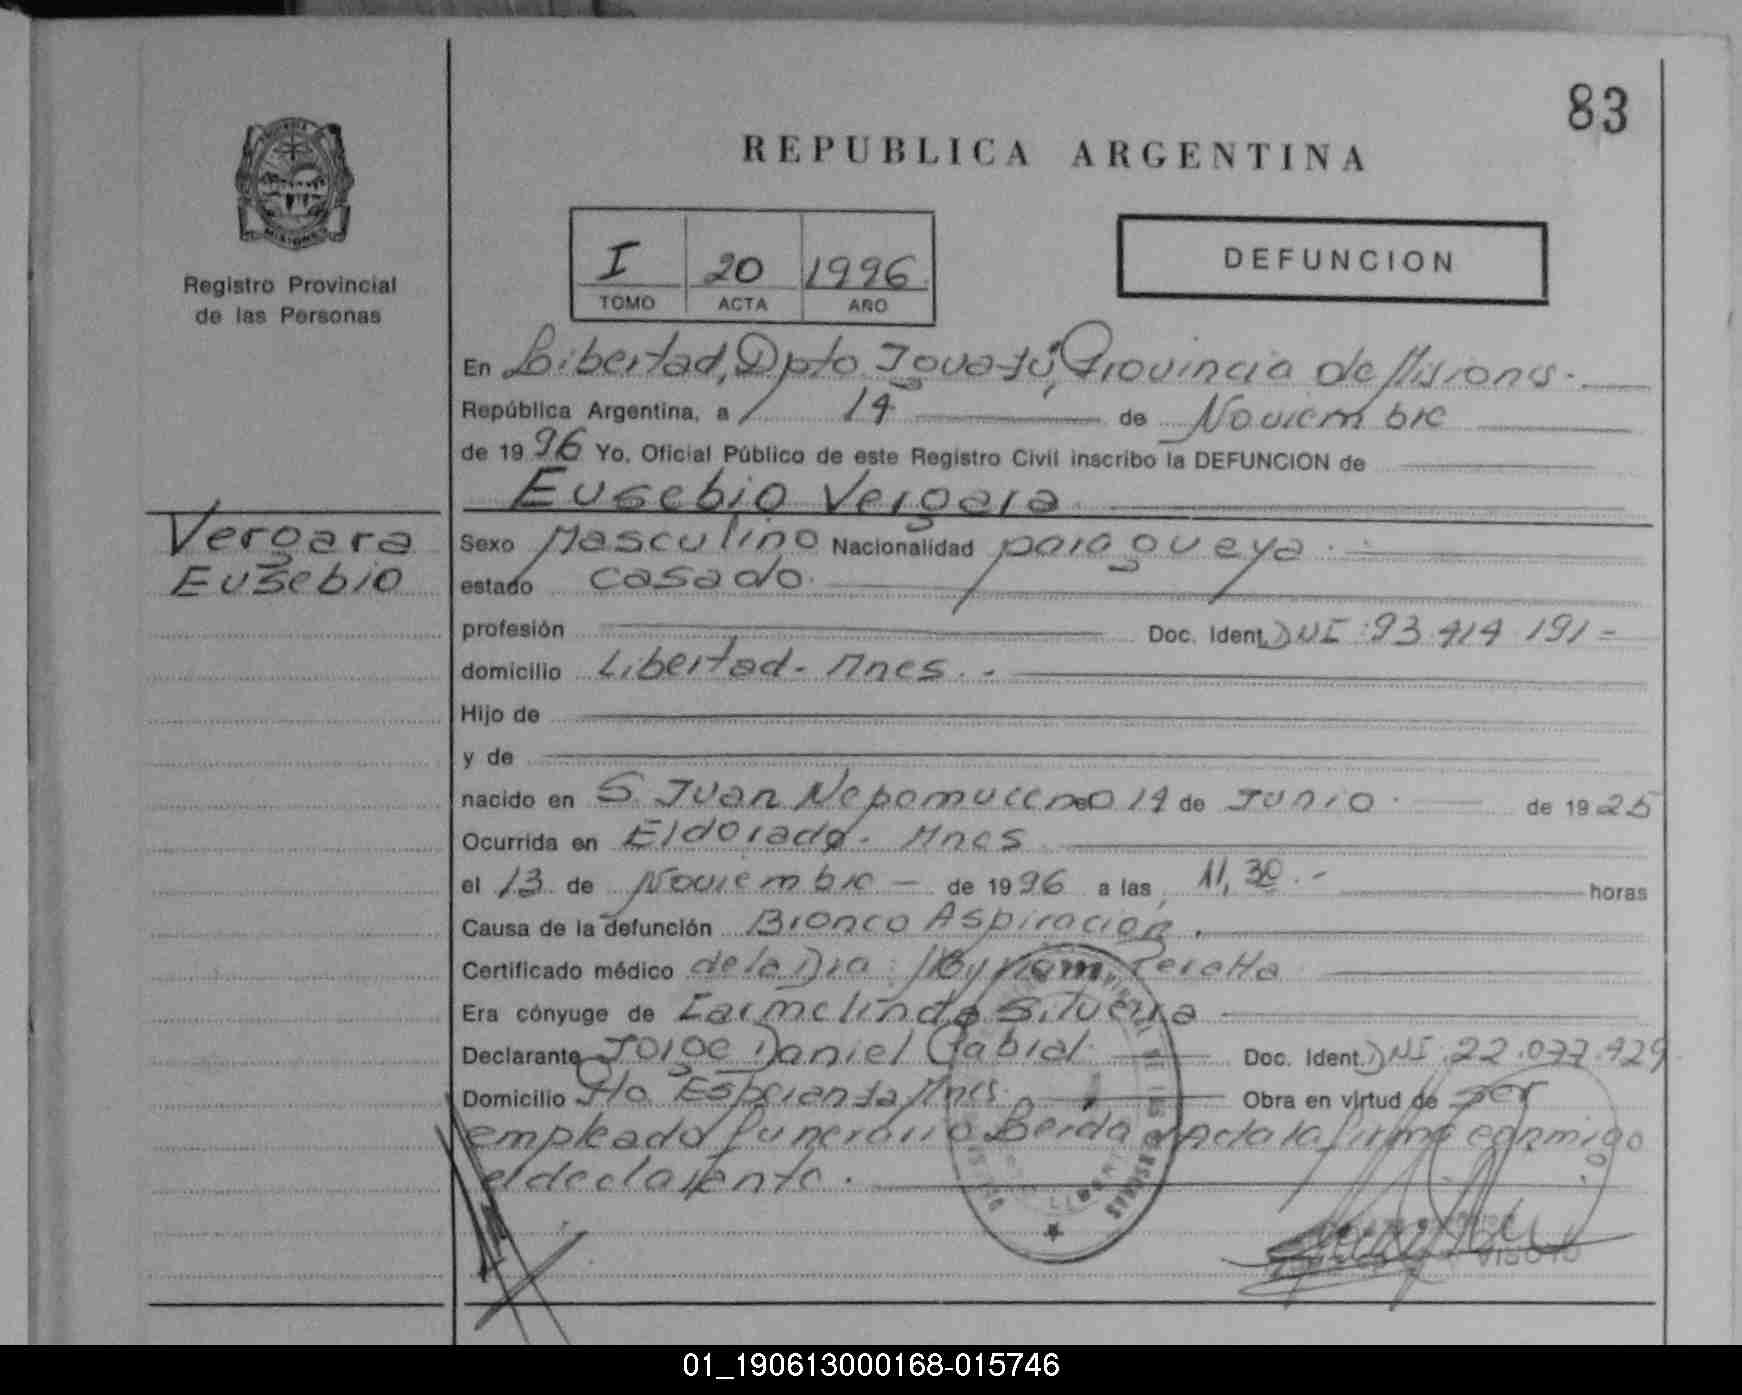 83
REPUBLICA ARGENTINA
MISIONES
Registro Provincial
de las Personas
I 20 1996
TOMO ACTA AÑO
DEFUNCION
En Libertad, Dpto. Iguazú, Provincia de Misiones.
República Argentina, a 14 de Noviembre
de 1996 Yo, Oficial Público de este Registro Civil inscribo la DEFUNCION de
Eusebio Vergara
Vergara
Eusebio
Sexo Masculino Nacionalidad paraguaya.
estado casado.
profesión Doc. Ident. DNI 93.414.191-
domicilio Libertad- Mnes.-
Hijo de
y de
nacido en S. Juan Nepomuceno 14 de Junio. de 1925
Ocurrida en Eldorado- Mnes
el 13 de Noviembre - de 1996 a las 11,30.- horas
Causa de la defunción Bronco Aspiración.
Certificado médico de la Dra. Peralta
Era cónyuge de Carmelinda Silveira
Declarante Jorge Daniel Cabral. Doc. Ident. DNI 22.077.429
Domicilio Pto Esperanza Mnes. Obra en virtud de ser
empleado funeraria Acta la firma conmigo
el declarante.
01_190613000168-015746